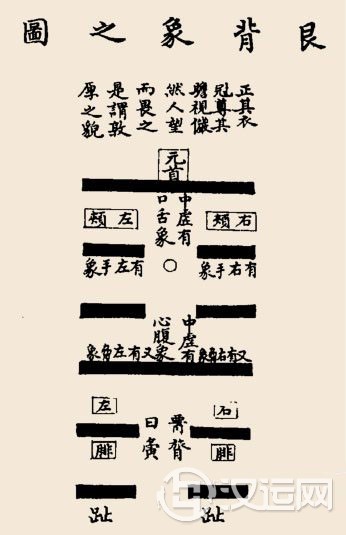 艮背象之圖
正其衣
冠尊其
瞻視儼
然人望
而畏之
是謂敦
原之貌
元首
中虛有
口舌象
右頰
左頰
有右手象
有左手象
中虛有
心腹象
又有右象
又有左象
右
左
曰夤
腓
腓
趾
趾
汉运网